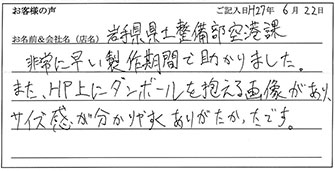 お客様の声 ご記入日H27年 6月 22日
お名前&会社名(店名) 岩手県県土整備部空港課
非常に早い製作期間で助かりました。
また、HP上にダンボールを抱える画像があり、
サイズ感が分かりやすくありがたかったです。